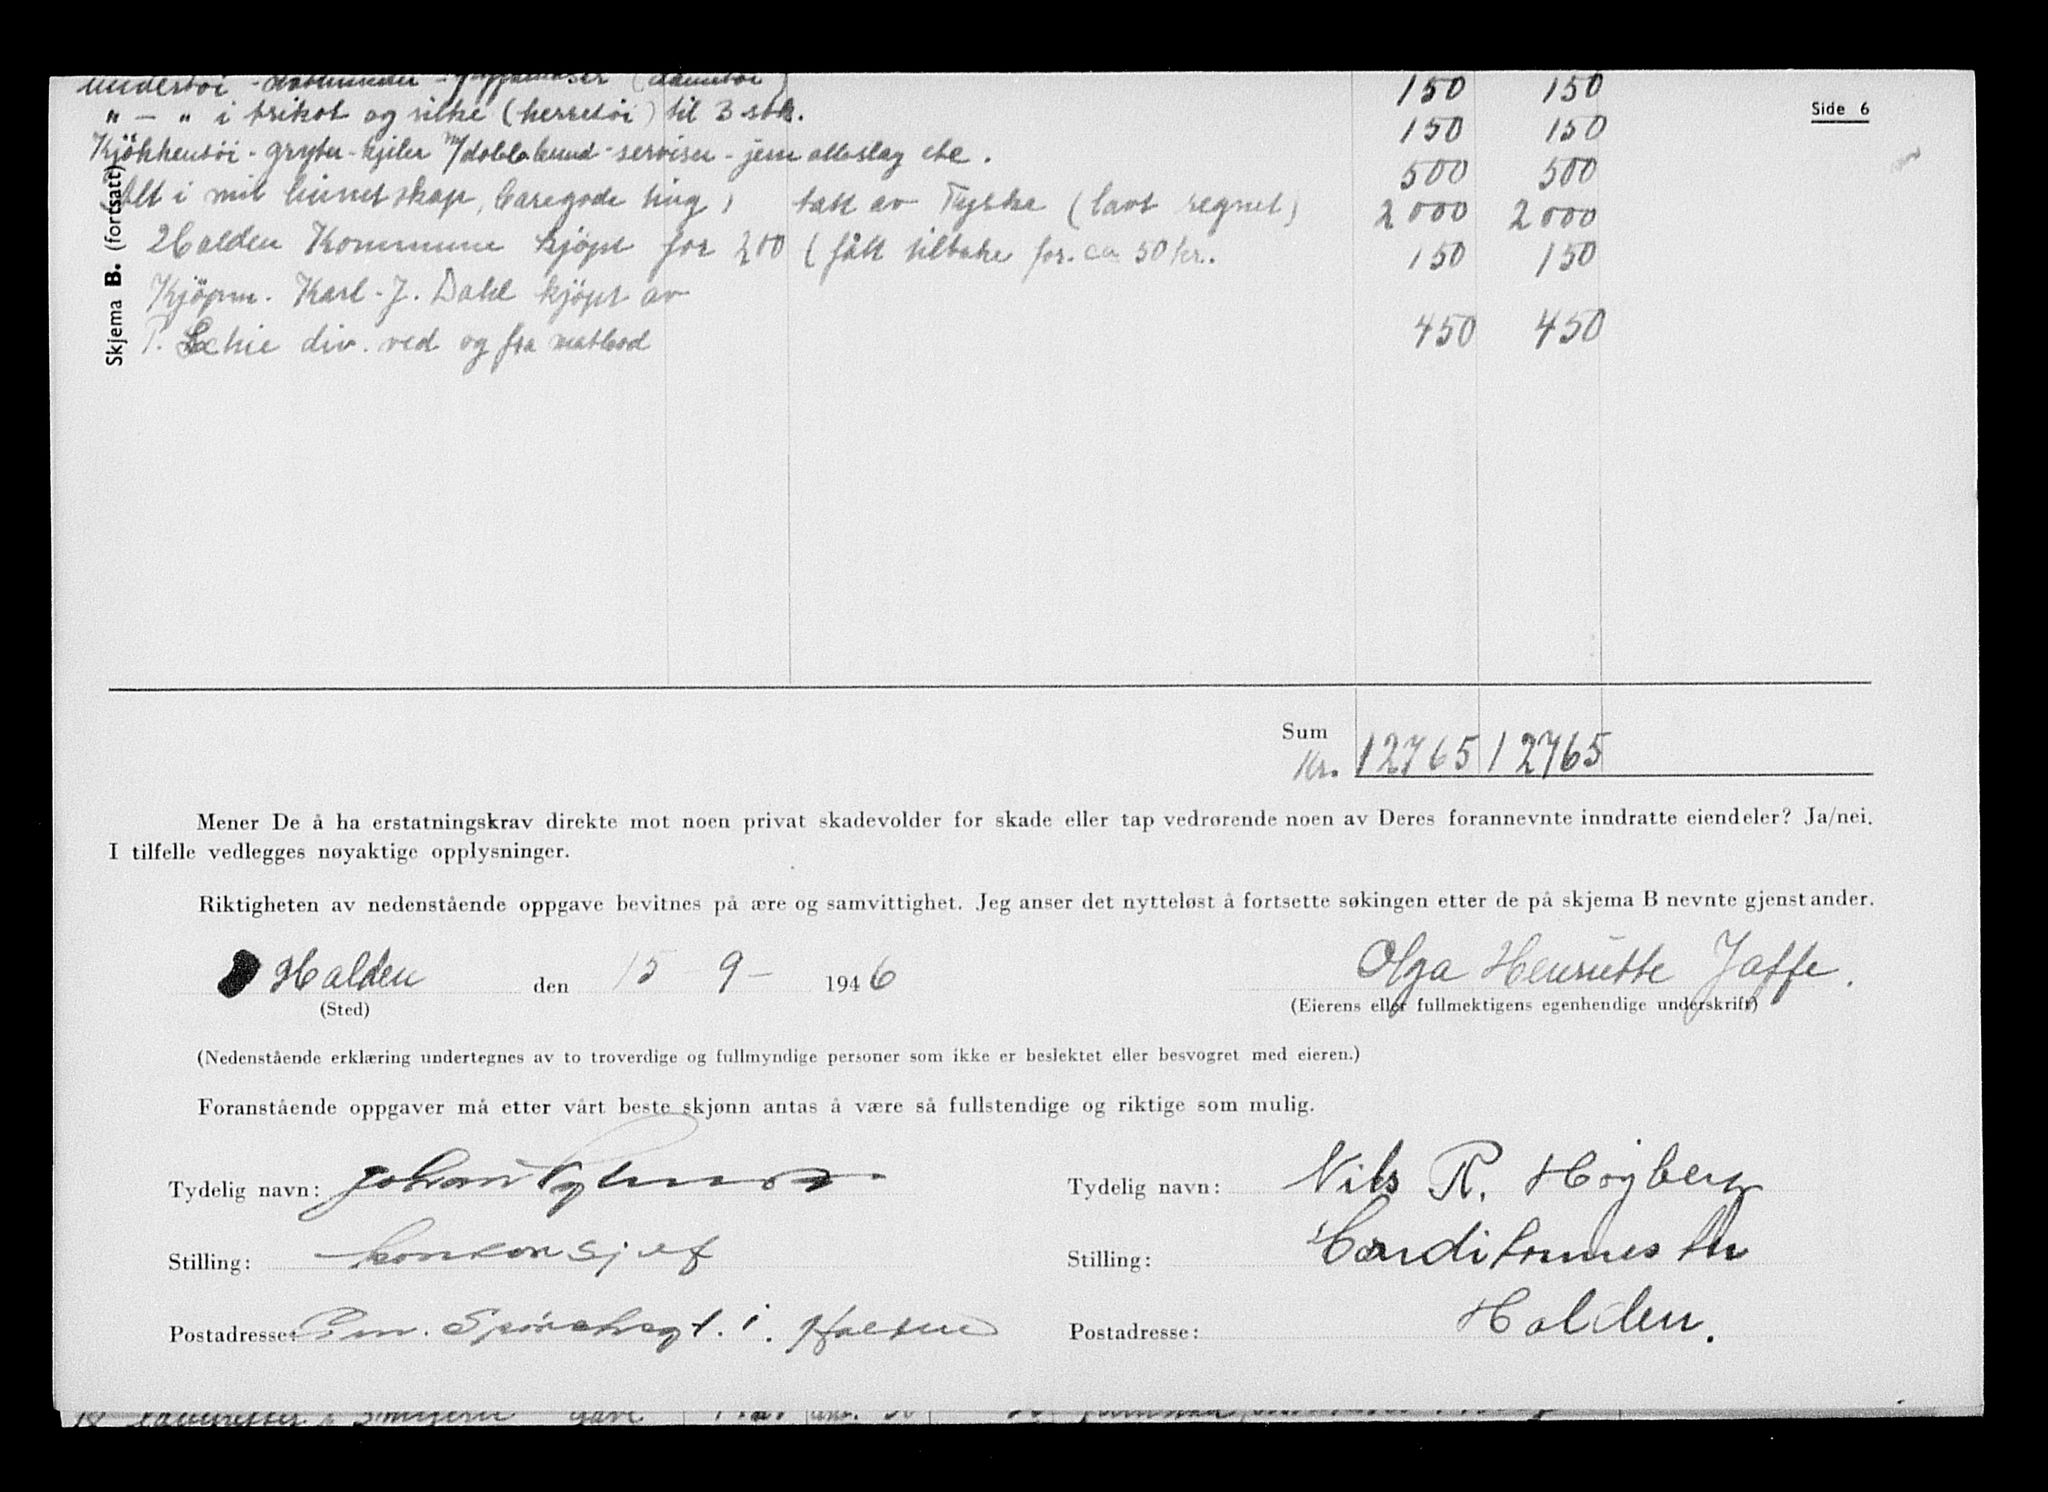 Undertöi - (dametöi) 150 150
" - " i trikot og silke (herretöi) til 3 stk. 150 150
Side 6
Kjökkentöi - gryter - kjeler m/dobb. bund - serviser - jern alleslag etc. 500 500
Alt i mit linnetskap, baregode ting, tatt av Tyske (lavt regnet) 2000 2000
Halden Kommune kjöpt for 200 (fått tilbake for. ca 50 kr. 150 150
Kjöpm. Karl - J. Dahl kjöpt av
P. div. ved og fra matbod 450 450
Skjema B. (fortsatt)
Sum
Kr. 12765 12765
Mener De å ha erstatningskrav direkte mot noen privat skadevolder for skade eller tap vedrørende noen av Deres forannevnte inndratte eiendeler? Ja/nei.
I tilfelle vedlegges nøyaktige opplysninger.
Riktigheten av nedenstående oppgave bevitnes på ære og samvittighet. Jeg anser det nytteløst å fortsette søkingen etter de på skjema B nevnte gjenstander.
Halden den 15 - 9 - 1946 Olga Henriette Jaffe.
(Sted) (Eierens eller fullmektigens egenhendige underskrift)
(Nedenstående erklæring undertegnes av to troverdige og fullmyndige personer som ikke er beslektet eller besvogret med eieren.)
Foranstående oppgaver må etter vårt beste skjønn antas å være så fullstendige og riktige som mulig.
Tydelig navn: Johan Tydelig navn: Nils R. Højberg
Stilling: kontorsjef Stilling: Conditormester
Postadresse: Postadresse: Halden.